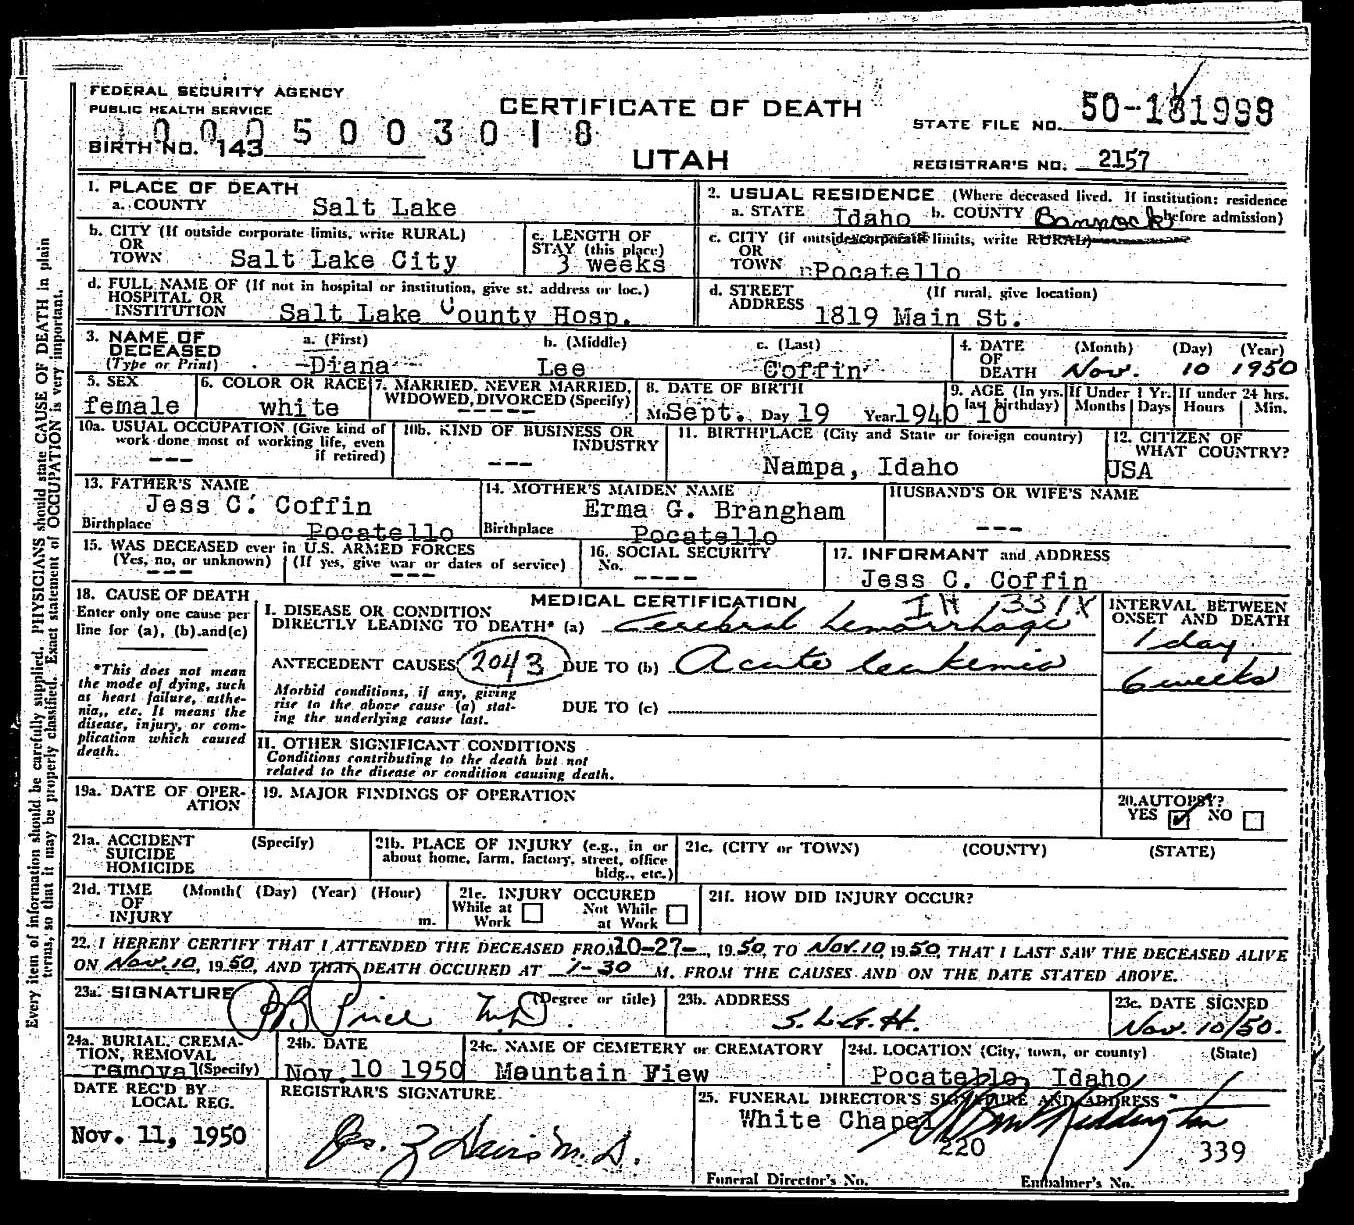 FEDERAL SECURITY AGENCY
PUBLIC HEALTH SERVICE
CERTIFICATE OF DEATH
UTAH
STATE FILE NO. 50-181999
BIRTH NO. 143
0005003018
REGISTRAR'S NO. 2157
1. PLACE OF DEATH
a. COUNTY Salt Lake
b. CITY (If outside corporate limits, write RURAL)
OR
TOWN Salt Lake City
c. LENGTH OF
STAY (this place)
3 weeks
d. FULL NAME OF (If not in hospital or institution, give st. address or loc.)
HOSPITAL OR
INSTITUTION Salt Lake County Hosp.
2. USUAL RESIDENCE (Where deceased lived. If institution: residence
a. STATE Idaho b. COUNTY Bannock before admission)
c. CITY (if outside corporate limits, write RURAL)
OR
TOWN Pocatello
d. STREET (If rural, give location)
ADDRESS 1819 Main St.
3. NAME OF
DECEASED
(Type or Print)
a. (First) b. (Middle) c. (Last)
Diana Lee Coffin
4. DATE (Month) (Day) (Year)
OF
DEATH Nov. 10 1950
5. SEX
female
6. COLOR OR RACE
white
7. MARRIED, NEVER MARRIED,
WIDOWED, DIVORCED (Specify)
-----
8. DATE OF BIRTH
Mo Sept. Day 19 Year 1940
9. AGE (In yrs. last birthday) 10
If Under 1 Yr.
Months Days
If under 24 hrs.
Hours Min.
10a. USUAL OCCUPATION (Give kind of
work done most of working life, even
if retired)
---
10b. KIND OF BUSINESS OR
INDUSTRY
---
11. BIRTHPLACE (City and State or foreign country)
Nampa, Idaho
12. CITIZEN OF
WHAT COUNTRY?
USA
13. FATHER'S NAME
Jess C. Coffin
Birthplace Pocatello
14. MOTHER'S MAIDEN NAME
Erma G. Brangham
Birthplace Pocatello
HUSBAND'S OR WIFE'S NAME
---
15. WAS DECEASED ever in U.S. ARMED FORCES
(Yes, no, or unknown) (If yes, give war or dates of service)
--- ---
16. SOCIAL SECURITY
No.
----
17. INFORMANT and ADDRESS
Jess C. Coffin
18. CAUSE OF DEATH
Enter only one cause per
line for (a), (b).and(c)
*This does not mean
the mode of dying, such
as heart failure, asthe-
nia,, etc. It means the
disease, injury, or com-
plication which caused
death.
MEDICAL CERTIFICATION
I. DISEASE OR CONDITION
DIRECTLY LEADING TO DEATH* (a) Cerebral hemorrhage
331X
ANTECEDENT CAUSES 2043 DUE TO (b) Acute leukemia
Morbid conditions, if any, giving
rise to the above cause (a) stat-
ing the underlying cause last.
DUE TO (c)
INTERVAL BETWEEN
ONSET AND DEATH
1 day
6 weeks
II. OTHER SIGNIFICANT CONDITIONS
Conditions contributing to the death but not
related to the disease or condition causing death.
19a. DATE OF OPER-
ATION
19. MAJOR FINDINGS OF OPERATION
20. AUTOPSY?
YES ✓ NO
21a. ACCIDENT (Specify)
SUICIDE
HOMICIDE
21b. PLACE OF INJURY (e.g., in or
about home, farm, factory, street, office
bldg., etc.)
21c. (CITY or TOWN) (COUNTY) (STATE)
21d. TIME (Month( (Day) (Year) (Hour)
OF
INJURY m.
21e. INJURY OCCURED
While at Work
Not While at Work
21f. HOW DID INJURY OCCUR?
22. I HEREBY CERTIFY THAT I ATTENDED THE DECEASED FROM 10-27-, 1950, TO Nov. 10, 1950, THAT I LAST SAW THE DECEASED ALIVE
ON Nov. 10, 1950, AND THAT DEATH OCCURED AT 1-30 M. FROM THE CAUSES AND ON THE DATE STATED ABOVE.
23a. SIGNATURE (Degree or title)
Price M.D.
23b. ADDRESS
S.L.G.H.
23c. DATE SIGNED
Nov. 10/50.
24a. BURIAL, CREMA-
TION, REMOVAL
removal (Specify)
24b. DATE
Nov. 10 1950
24c. NAME OF CEMETERY or CREMATORY
Mountain View
24d. LOCATION (City, town, or county) (State)
Pocatello, Idaho
DATE REC'D BY
LOCAL REG.
Nov. 11, 1950
REGISTRAR'S SIGNATURE
M.D.
25. FUNERAL DIRECTOR'S SIGNATURE AND ADDRESS
White Chapel
220 339
Funeral Director's No. Embalmer's No.
Every item of information should be carefully supplied. PHYSICIANS should state CAUSE OF DEATH in plain
terms, so that it may be properly classified. Exact statement of OCCUPATION is very important.